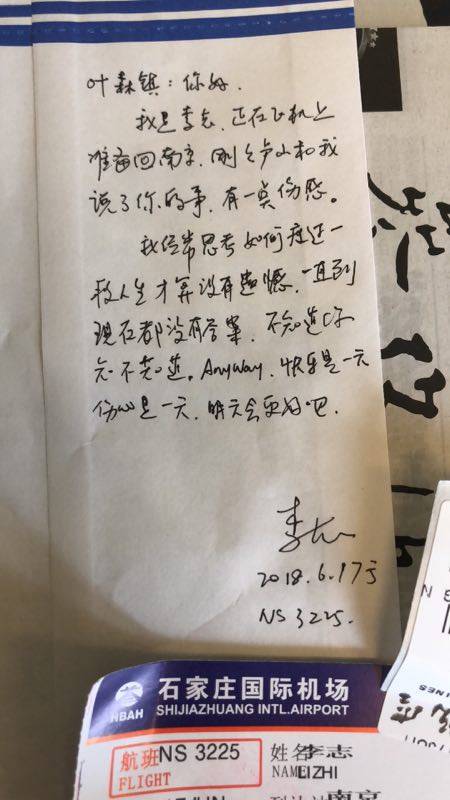 叶森镇：你好．
我是李志，正在飞机上
准备回南京，刚才卢山和我
说了你的事，有一点伤感。
我经常思考如何度过一
段人生才算没有遗憾，一直到
现在都没有答案，不知道你
知不知道。Anyway，快乐是一天
伤心是一天，明天会更好吧．
李志
2018.6.17于
NS 3225.
石家庄国际机场
SHIJIAZHUANG INTL.AIRPORT
HBAH
航班 NS 3225 姓名 李志
FLIGHT NAME LIZHI
南京